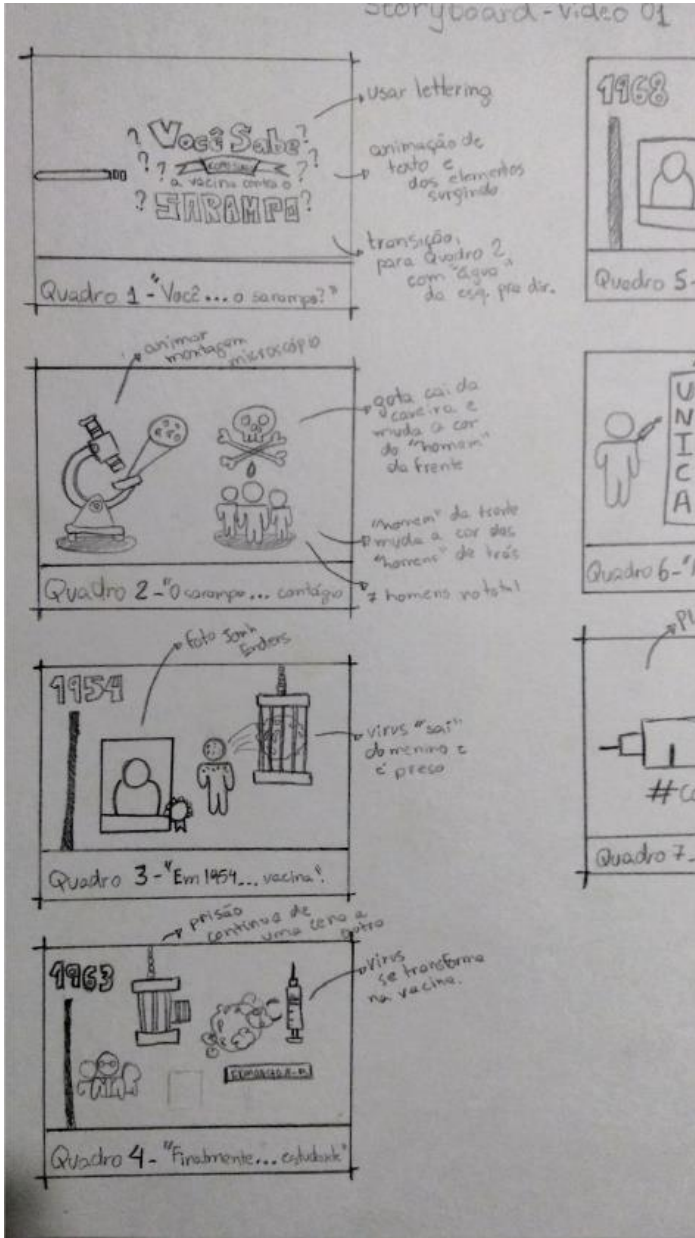 Storyboard - Video 01
usar lettering
Você Sabe
? ? ? ? ? ? ?
COMO SURGIU
a vacina contra o
SARAMPO?
animação de
texto e
dos elementos
surgindo
transição,
para Quadro 2
com "água"
da esq. pra dir.
Quadro 1 - "Você... o sarampo?"
animar
montagem
microscópio
gota cai da
caveira e
muda a cor
do "homem"
da frente
"homem" da frente
muda a cor dos
"homens" de trás
7 homens no total
Quadro 2 - "O sarampo... contágio
foto Jonh
Enders
1954
virus "sai"
do menino e
é preso
Quadro 3 - "Em 1954... vacina".
prisão
continua de
uma cena a
outra
1963
virus
se transforma
na vacina.
EDMONSTON-B
Quadro 4 - "Finalmente... estudante"
1968
Quadro 5 -
UNICA
Quadro 6 - "
#Co
Quadro 7 -